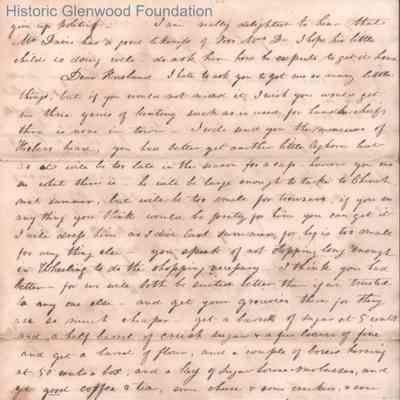 Historic Glenwood Foundation
give up politics — I am really delighted to hear that
Mr Davis has a good likeness of Mrs D. I hope his little
child is doing well — do ask him how he expects to get it home
Dear Husband I hate to ask you to get me so many little
things, but if you would not mind it, I wish you would get
me three yards of bunting such as is used for handkerchiefs
there is none in town — I will send you the measure of
head, you had better get another little leghorn hat
as it will be too late in the season for a cap however you can
see what there is — he will be large enough to take to Church
next summer, but will be too small for trousers, if you see
any thing you think would be pretty for him you can get it
I will dress him as I did last summer, for he is too small
for any thing else — you speak of not stopping long enough
in Wheeling to do the shopping necessary I think you had
better — for we will both be suited better than if we trusted
to any one else — and get your groceries there for they
are so much cheaper — get a barrel of sugar at 5 cents
and a half barrel of crush sugar & a few loaves of fine
and get a barrel of flour, and a couple of boxes herring
at 50 cents a box, and a keg of sugar house molasses, and
get good coffee & tea, some cheese & some crackers, & some